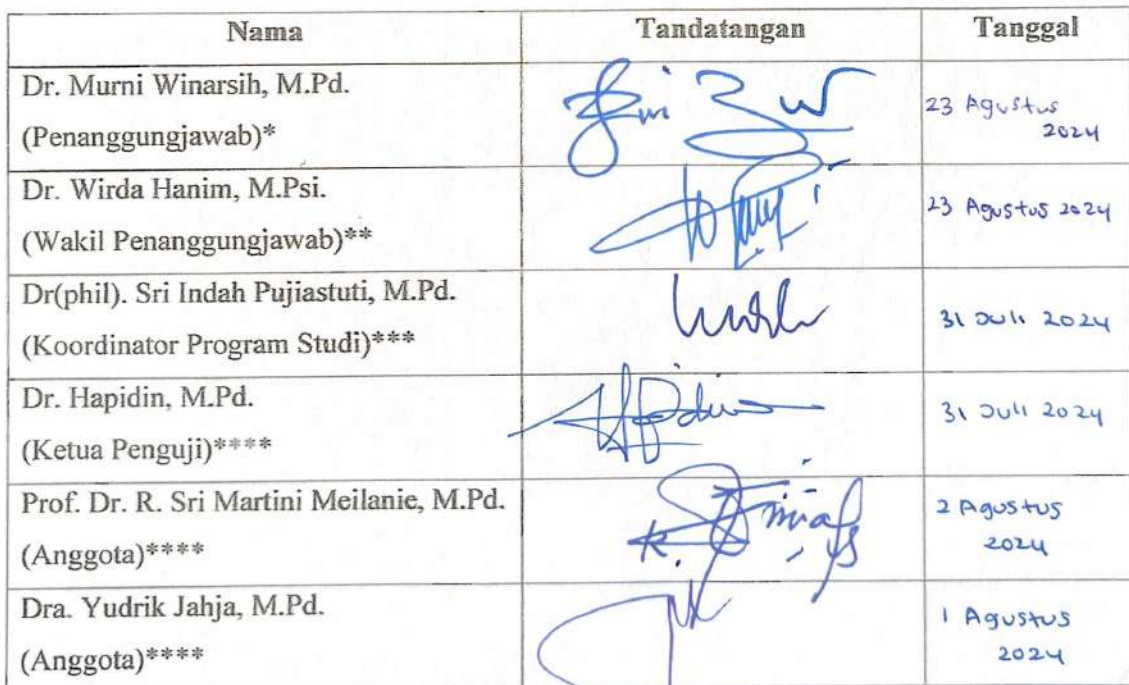 Nama Tandatangan Tanggal
Dr. Murni Winarsih, M.Pd.
(Penanggungjawab)*
23 Agustus
2024
Dr. Wirda Hanim, M.Psi.
(Wakil Penanggungjawab)**
23 Agustus 2024
Dr(phil). Sri Indah Pujiastuti, M.Pd.
(Koordinator Program Studi)***
31 Juli 2024
Dr. Hapidin, M.Pd.
(Ketua Penguji)****
31 Juli 2024
Prof. Dr. R. Sri Martini Meilanie, M.Pd.
(Anggota)****
2 Agustus
2024
Dra. Yudrik Jahja, M.Pd.
(Anggota)****
1 Agustus
2024